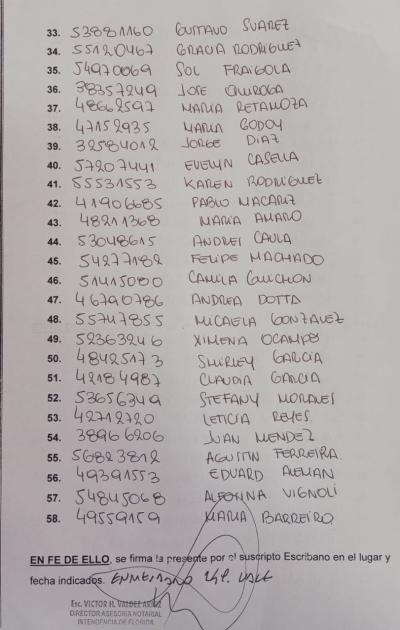 33. 53881160 GUSTAVO SUAREZ
34. 55120467 GRACIA RODRIGUEZ
35. 54970069 SOL FRAIGOLA
36. 38357249 JOSE QUIROGA
37. 48662597 MARIA RETAMOZA
38. 47152935 MARIA GODOY
39. 32584012 JORGE DIAZ
40. 57207441 EVELYN CASELLA
41. 55531553 KAREN RODRIGUEZ
42. 41906685 PABLO MACARIZ
43. 48211368 MARIA AMARO
44. 53048615 ANDREI CAULA
45. 54277182 FELIPE MACHADO
46. 51415080 CAMILA GUICHON
47. 46790786 ANDREA DOTTA
48. 55747855 MICAELA GONZALEZ
49. 52363246 XIMENA OCAMPO
50. 48425173 SHIRLEY GARCIA
51. 42184987 CLAUDIA GARCIA
52. 53656349 STEFANY MORALES
53. 42712720 LETICIA REYES.
54. 38966206 JUAN MENDEZ
55. 56823812 AGUSTIN FERREIRA.
56. 49391553 EDUARD ALEMAN
57. 54845068 ALFONINA VIGNOLI
58. 49559159 MARIA BARREIRO
EN FE DE ELLO, se firma la presente por el suscripto Escribano en el lugar y
fecha indicados. VALE
Esc. VICTOR H. VALDEZ
DIRECTOR ASESORIA NOTARIAL
INTENDENCIA DE FLORIDA